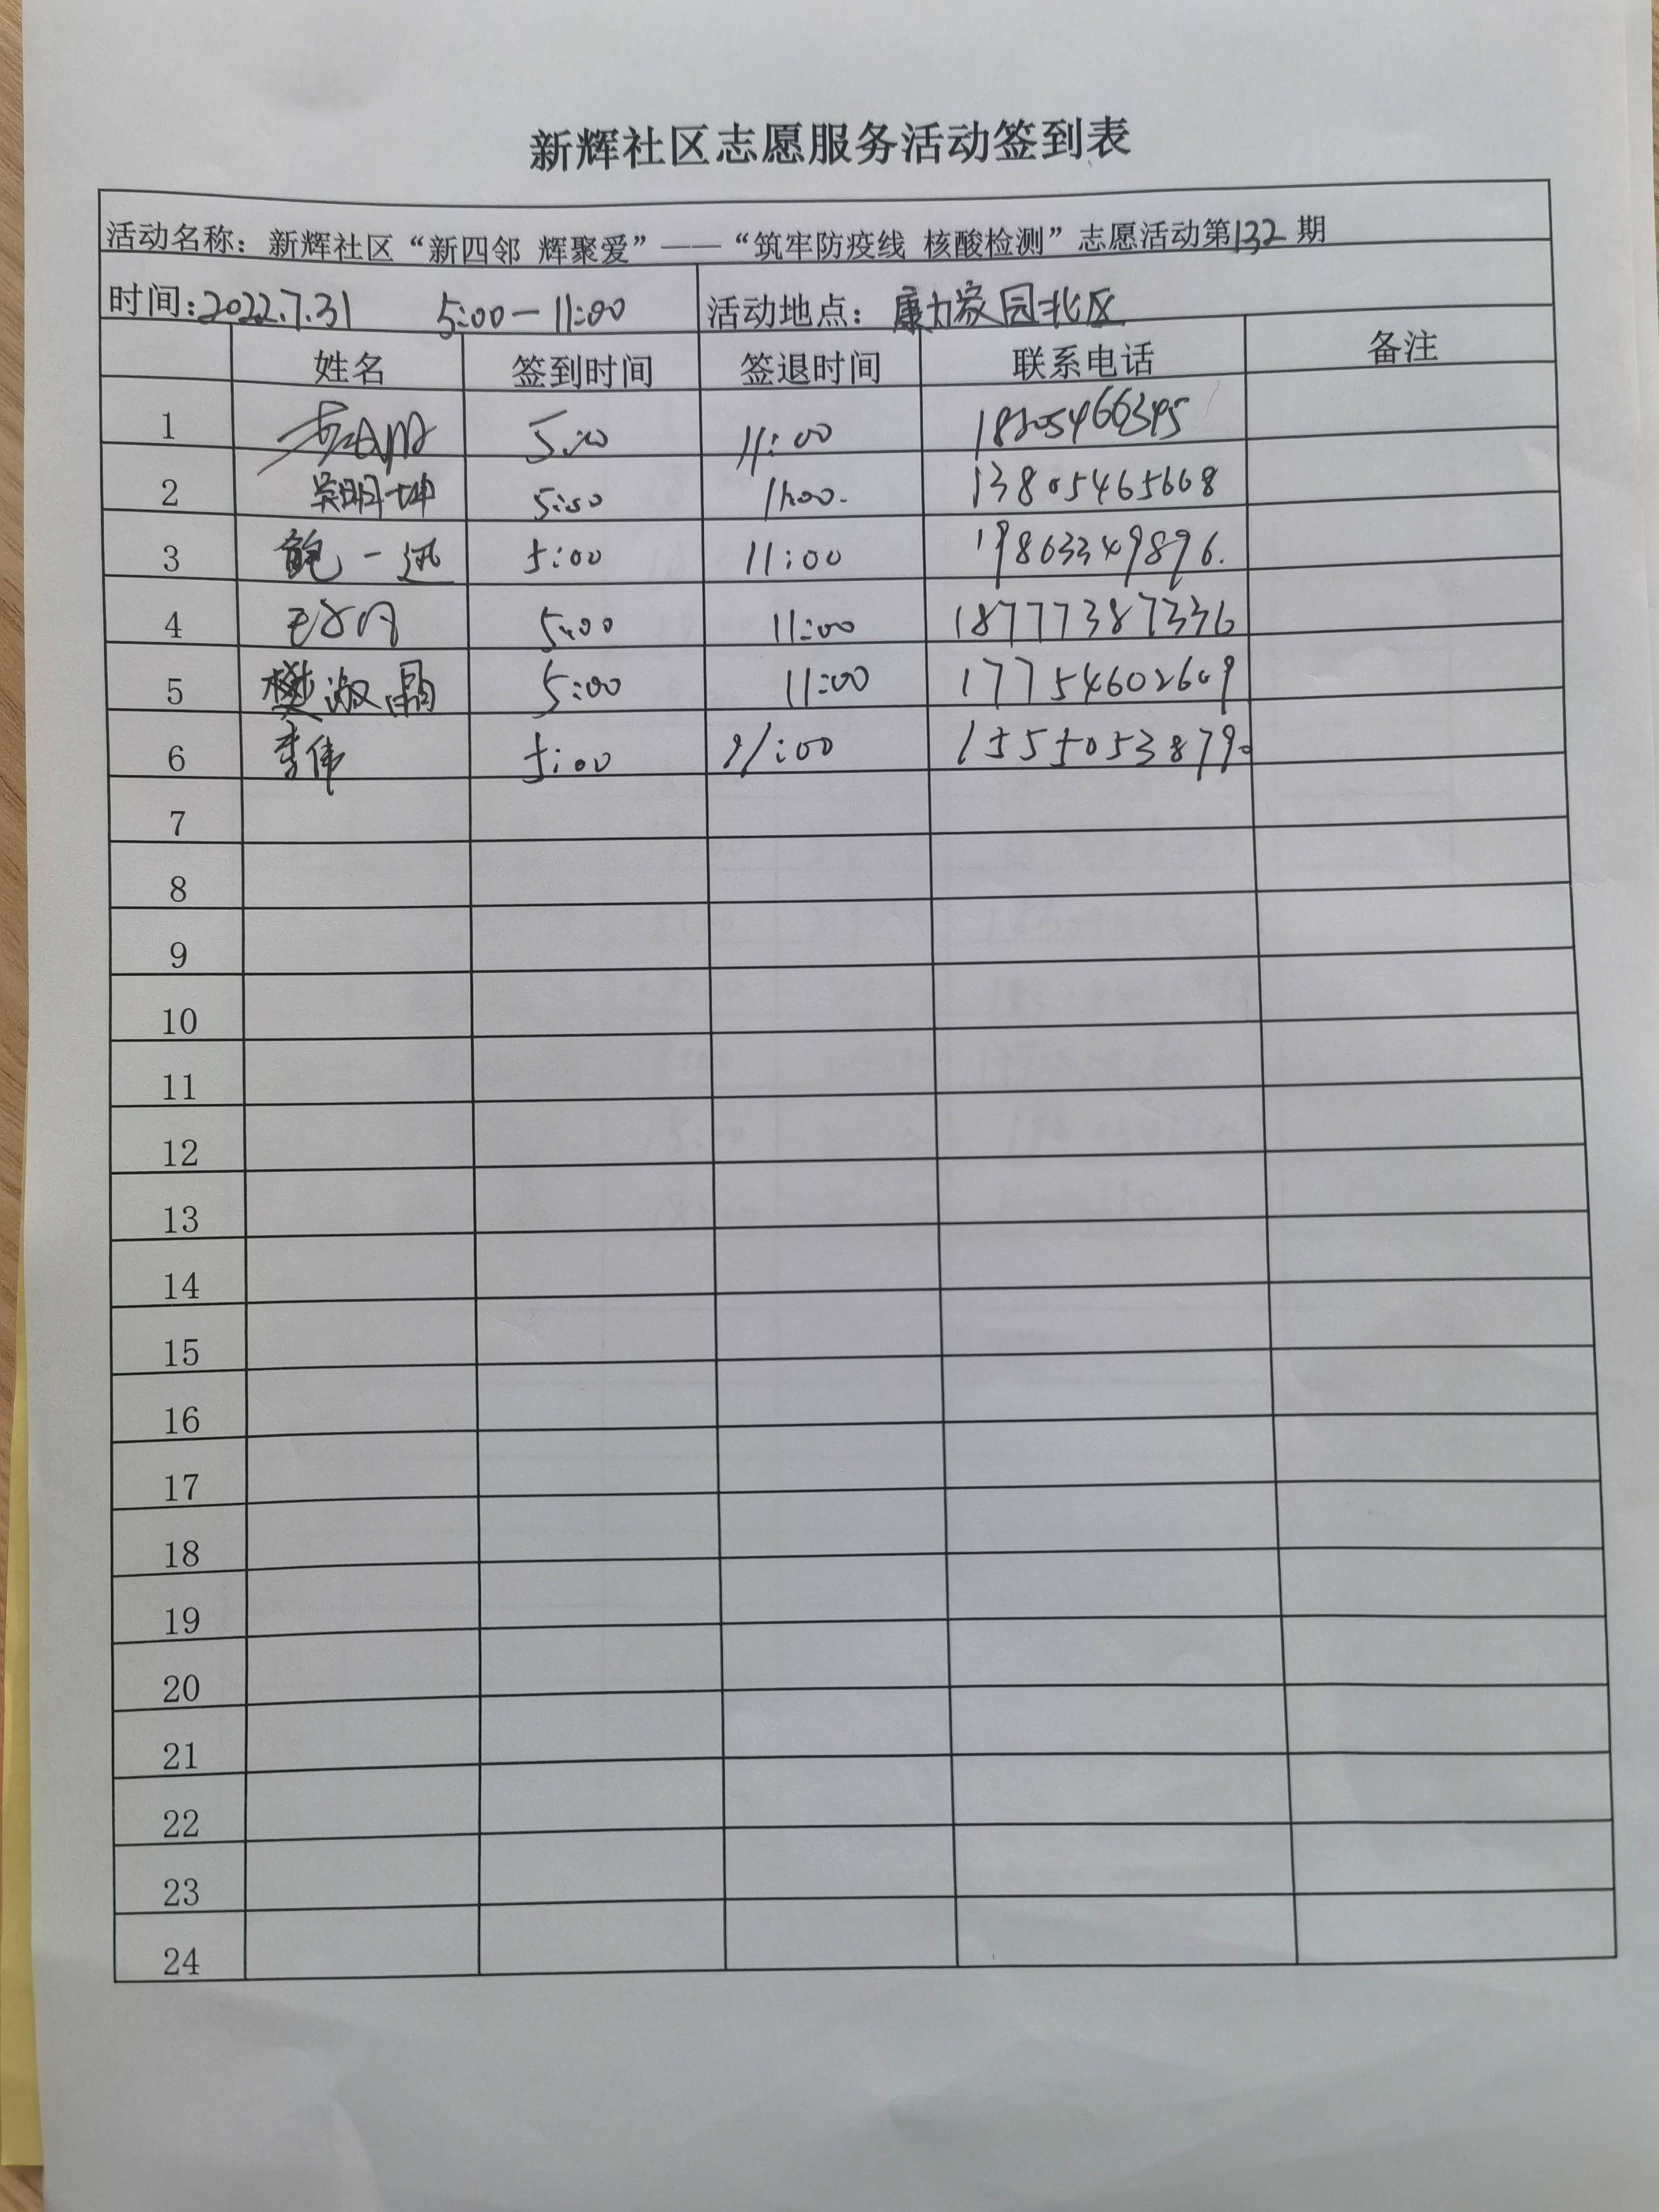 新辉社区志愿服务活动签到表
活动名称：新辉社区“新四邻 辉聚爱”——“筑牢防疫线 核酸检测”志愿活动第132期
时间：2022.7.31 5:00—11:00 活动地点：康力家园北区
姓名 签到时间 签退时间 联系电话 备注
1 5:00 11:00 18205466395
2 吴明坤 5:00 11:00. 13805465668
3 鲍一迅 5:00 11:00 19863349896.
4 5:00 11:00 18777387336
5 樊淑晶 5:00 11:00 17754602609
6 李伟 5:00 11:00 15550538790
7
8
9
10
11
12
13
14
15
16
17
18
19
20
21
22
23
24